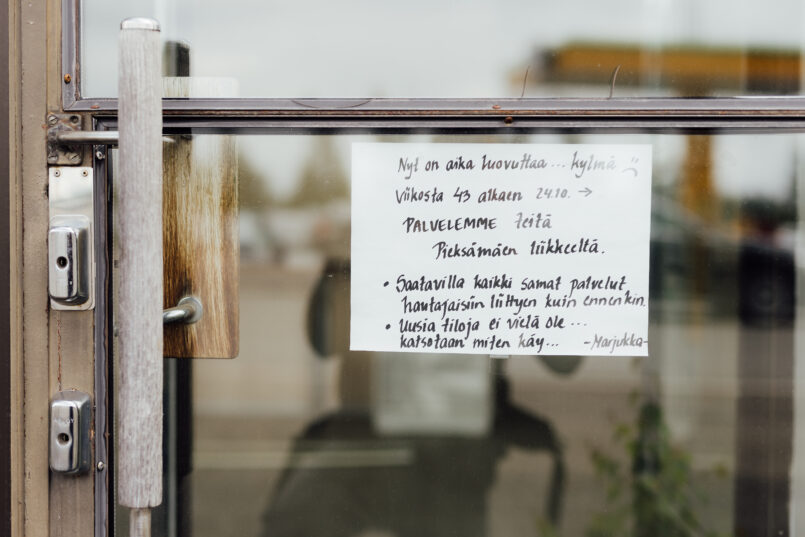 Nyt on aika luovuttaa... kylmä ☹
Viikosta 43 alkaen 24.10. →
PALVELEMME Teitä
Pieksämäen liikkeeltä.
• Saatavilla kaikki samat palvelut
hautajaisiin liittyen kuin ennenkin.
• Uusia tiloja ei vielä ole...
katsotaan miten käy... -Marjukka-